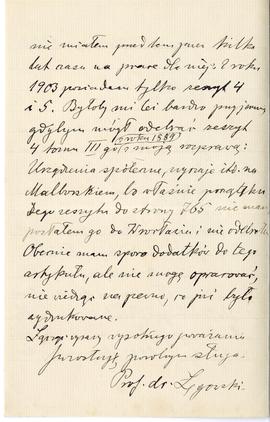 nie miałem przedtem przez kilka
lat czasu na prace dla niej. Z roku
1903 posiadam tylko zeszyt 4
i 5. Byłoby mi też bardzo przyjemnie
gdybym mógł odebrać zeszyt
z roku 1889
4 tomu III go z moją rozprawą:
Urządzenia społeczne, zwyczaje itd. na
Malborskiem, bo właśnie początku
tego zeszytu do strony 765 nie mam
posłałem go do Wrocławia i nie odebrał
Obecnie mam sporo dodatków do tego
artykułu, ale nie mogę opracować,
nie wiedząc na pewno, co już było
wydrukowane.
Z wysokiego poważania
powolnym sługą
Prof. dr. Łęgowski.